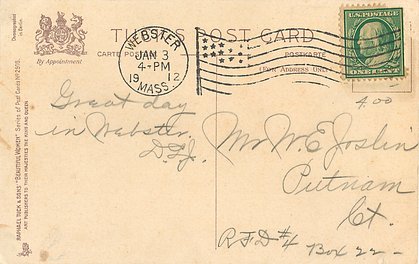 Dramagraphed in Berlin.
By Appointment
THIS POST CARD
CARTE POSTALE
POSTKARTE
(FOR ADDRESS ONLY)
WEBSTER
JAN 3
4-PM
1912
MASS.
U.S. POSTAGE
ONE CENT
4.00
Great day
in Webster.
Mr W. E. Joslin
Putnam
Ct.
RFD #4 Box 22-
RAPHAEL TUCK & SONS' "BEAUTIFUL WOMEN" Series of Post Cards No.
ART PUBLISHERS TO THEIR MAJESTIES THE KING AND QUEEN